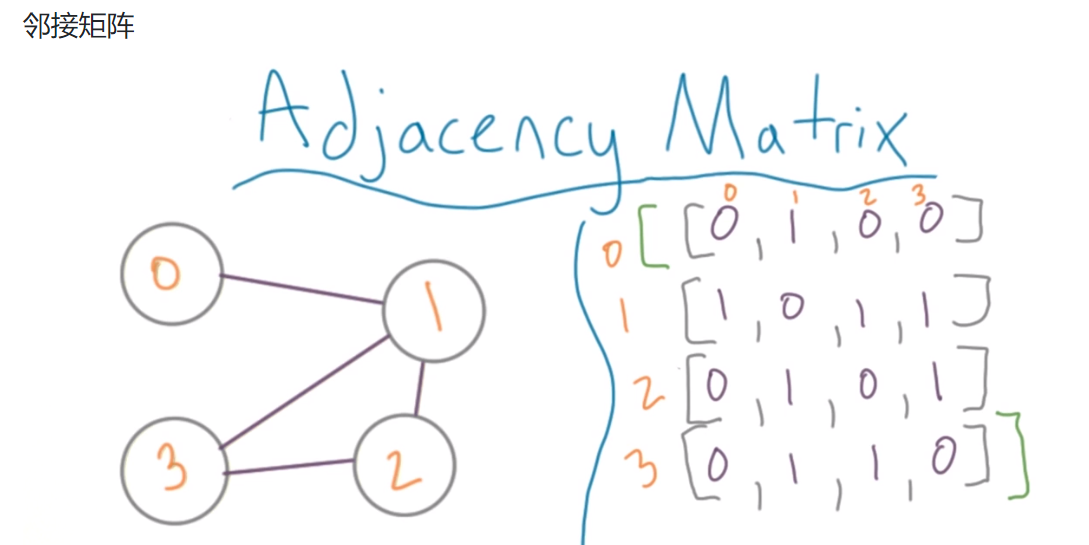 邻接矩阵
Adjacency Matrix
0 1 2 3
0 [ [0, 1, 0, 0]
1 [1, 0, 1, 1]
2 [0, 1, 0, 1]
3 [0, 1, 1, 0] ]
0
1
3
2